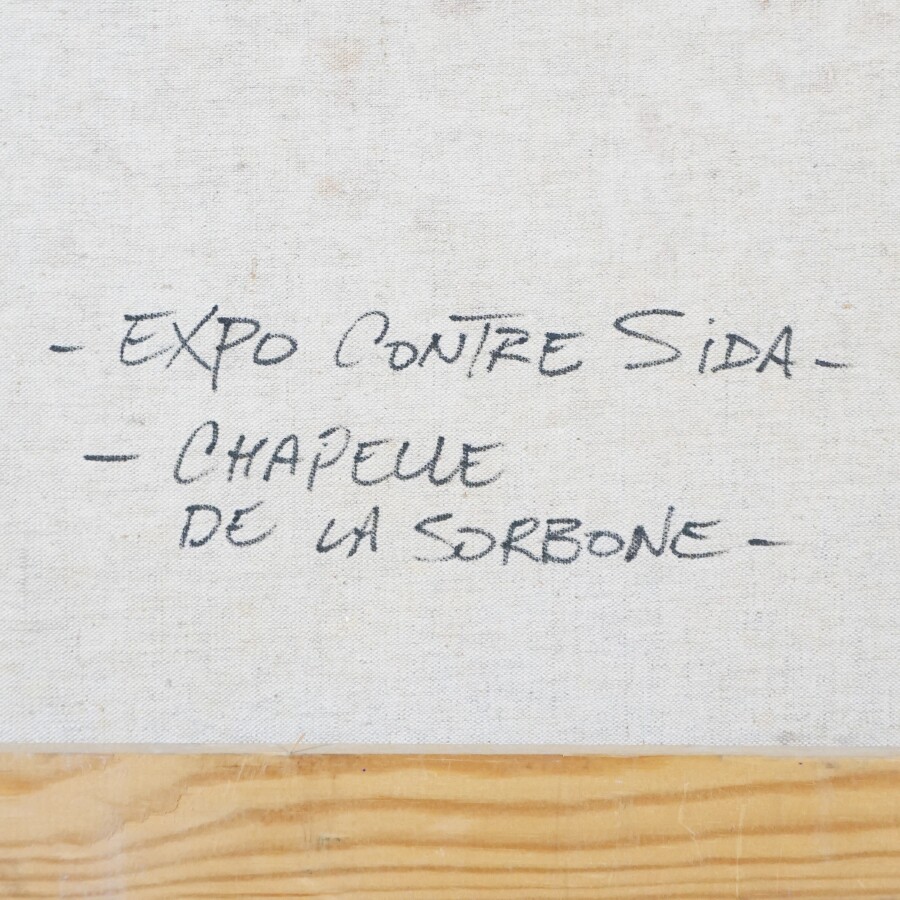 - EXPO CONTRE SiDA -
- CHAPELLE
DE LA SORBONE -